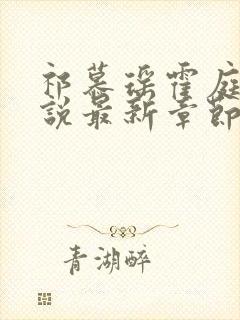 祁慕瑶霍庭
说最新章节
青湖醉